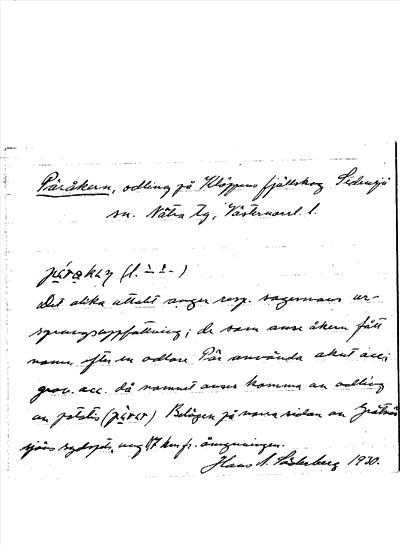 Päråkern, odling på Klöppens fjällskog Sidensjö
sn. Nätra tg, Västernorrl. l.
pä́rakɛṇ (l. ´ ` - )
Det olika uttalet anger resp. sagesmans ur-
sprungsuppfattning; de som anse åkern fått
namn efter en odlare Pär använda akut acc;
grav. acc. då namnet anses komma av odling
av potatis (pä̀rer) Belägen på norra sidan av
sjöns sydspets, ung 17 km fr.
Hans A. Söderberg 1930.